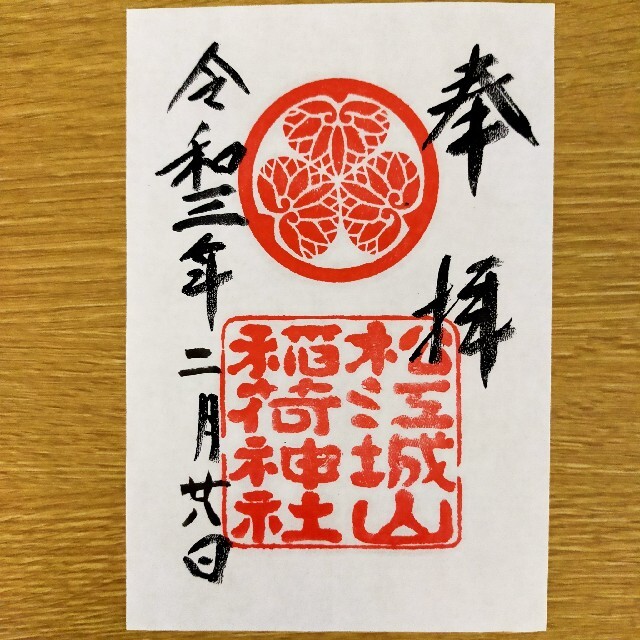 奉拝
松江城山
稲荷神社
令和三年二月廿八日